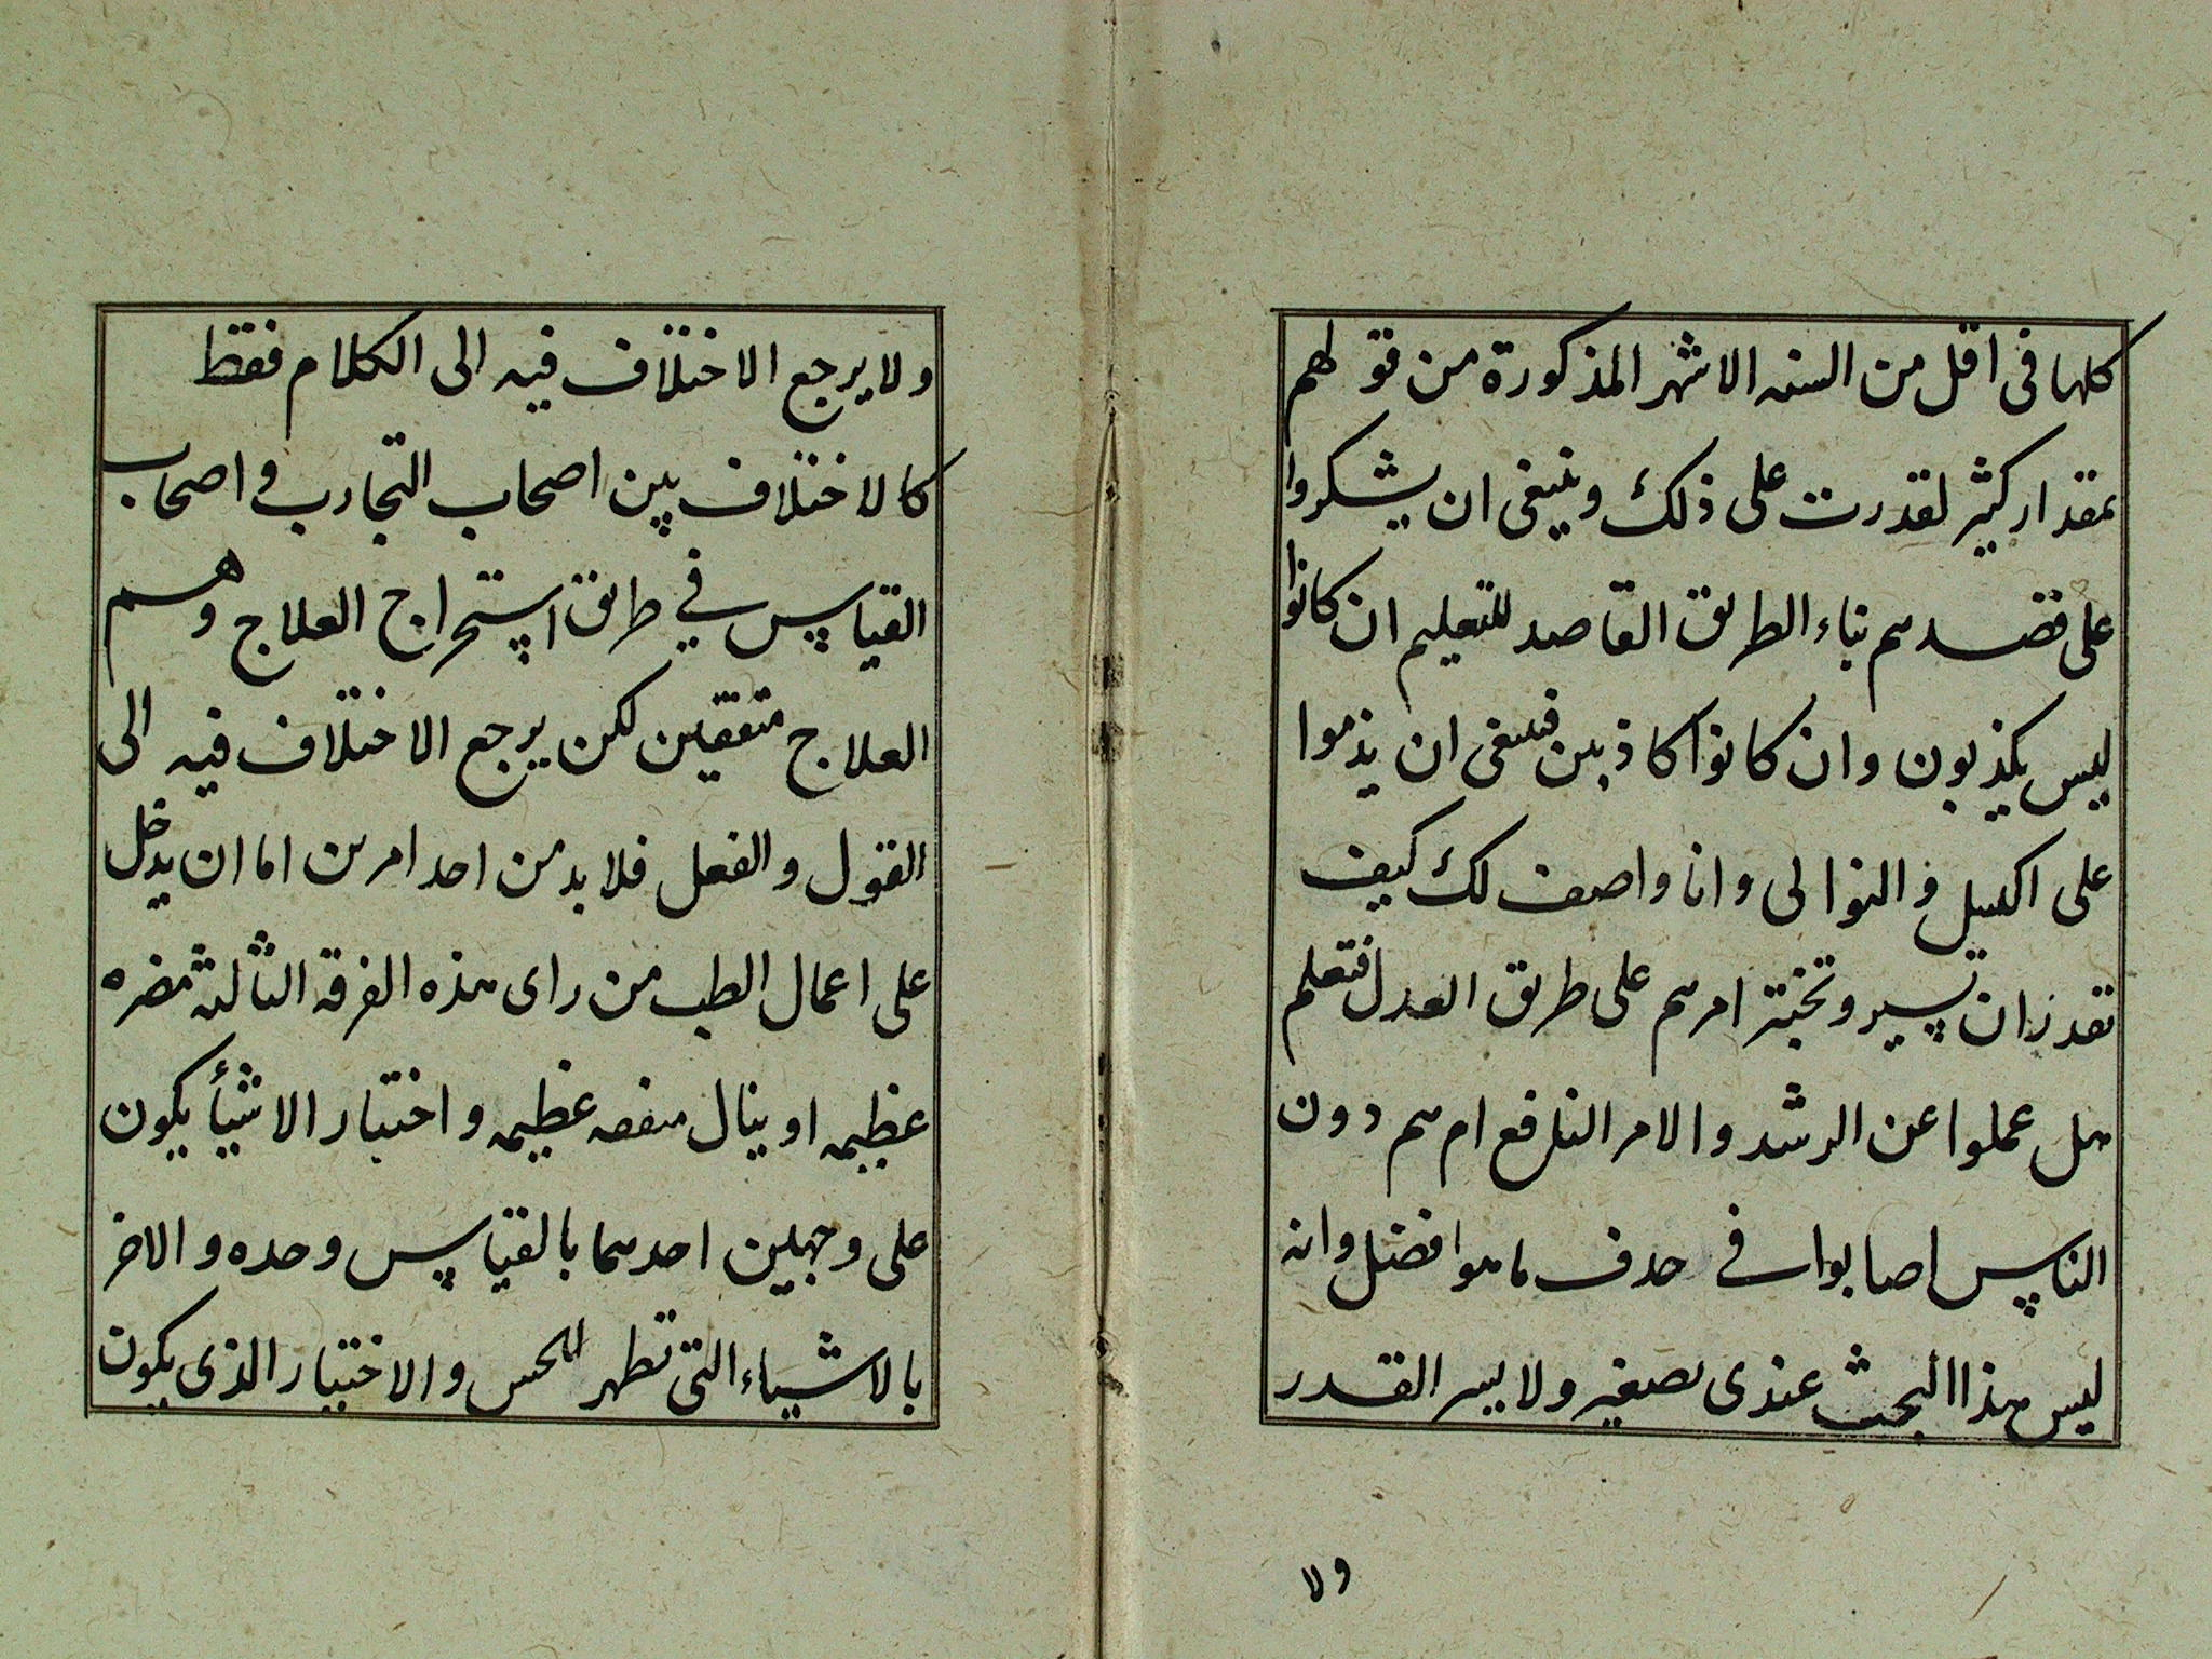 كلها فى اقل من السنه الاشهر المذكورة من قولهم
بمقدار كثير لقدرت على ذلك وينبغى ان يشكروا
على قصدهم بناء الطريق القاصد للتعليم ان كانوا
ليس يكذبون وان كانوا كاذبين فينبغى ان يذموا
على الكسل والتوالى وانا واصف لك كيف
تقدر ان تسير وتختبر امرهم على طريق العدل فتعلم
هل عملوا عن الرشد والامر النافع ام هم دون
الناس اصابوا فى حذف ما هو افضل وانه
ليس هذا البحث عندى بصغير ولا يسير القدر
ولا
ولا يرجع الاختلاف فيه الى الكلام فقط
كالاختلاف بين اصحاب التجارب واصحاب
القياس في طريق استخراج العلاج وهم
العلاج متفقين لكن يرجع الاختلاف فيه الى
القول والفعل فلا بد من احد امرين اما ان يدخل
على اعمال الطب من راى هذه الفرقه الثالثه مضره
عظيمه او ينال منفعه عظيمه واختبار الاشيأ يكون
على وجهين احدهما بالقياس وحده والاخر
بالاشياء التى تظهر للحس والاختبار الذى يكون